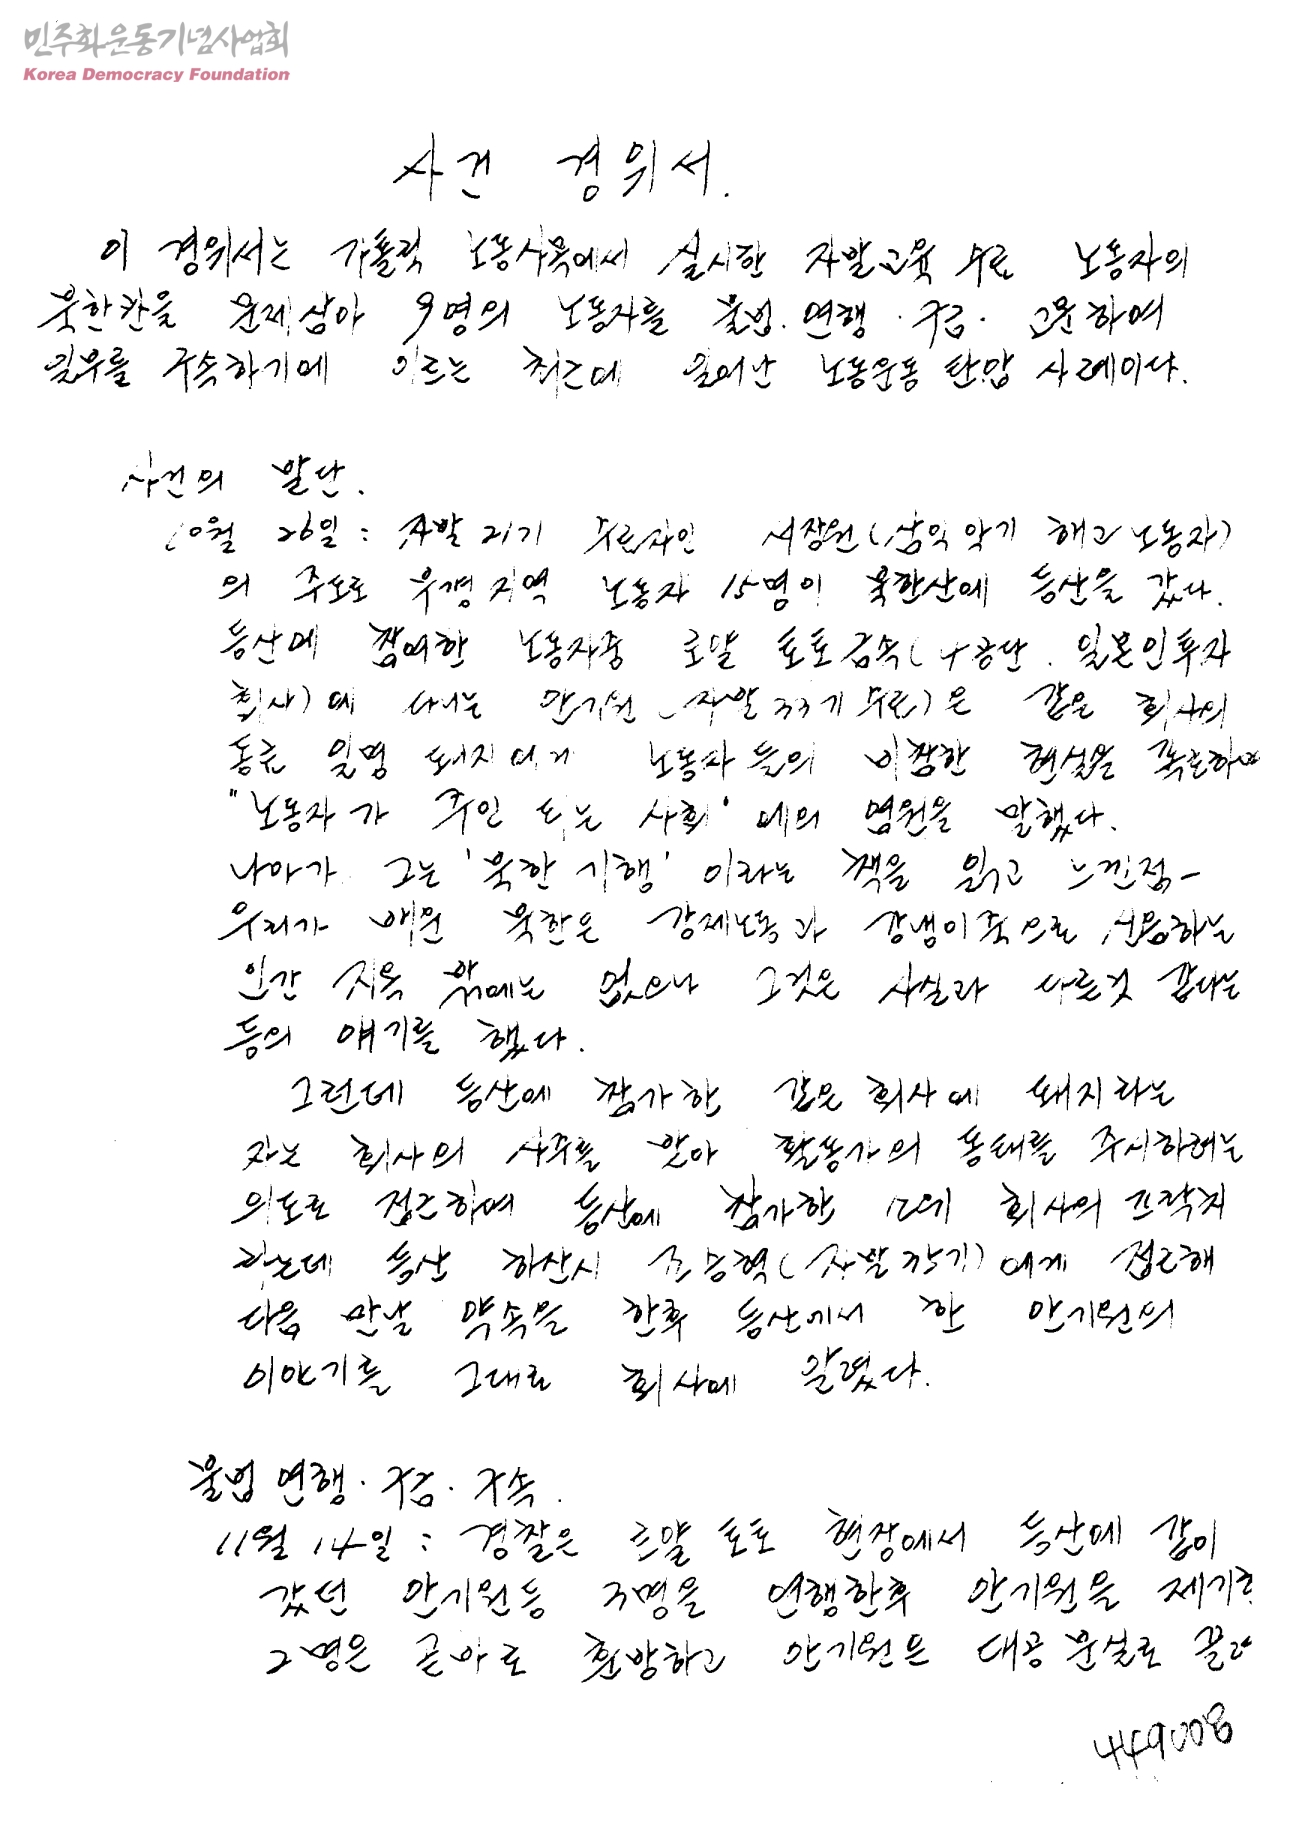 민주화운동기념사업회
Korea Democracy Foundation
사건 경위서.
이 경위서는 가톨릭 노동사목에서 실시한 자발교육 수료 노동자의
북한관을 문제삼아 9명의 노동자를 불법·연행·구금·고문하여
일부를 구속하기에 이르는 최근에 일어난 노동운동 탄압 사례이다.
사건의 발단.
10월 26일 : 자발 21기 수료자인 서장원(삼익악기 해고노동자)
의 주도로 지역 노동자 15명이 북한산에 등산을 갔다.
등산에 참여한 노동자중 로얄 토토금속(4공단. 일본인투자
회사)에 다니는 안기원(자발33기 수료)은 같은 회사의
동료 일명 돼지에게 노동자들의 비참한 현실을 폭로하며
"노동자가 주인 되는 사회'에의 염원을 말했다.
나아가 그는 '북한기행' 이라는 책을 읽고 느낀점-
우리가 배운 북한은 강제노동과 강냉이죽으로 연명하는
인간 지옥 밖에는 없으나 그것은 사실과 다른것 같다는
등의 얘기를 했다.
그런데 등산에 참가한 같은 회사에 돼지라는
자는 회사의 사주를 받아 활동가의 동태를 주시하려는
의도로 접근하여 등산에 참가한 회사의 프락치
라는데 등산 하산시 조승혁(자발 기)에게 접근해
다음 만날 약속을 한후 등산에서 한 안기원의
이야기를 그대로 회사에 알렸다.
불법 연행·구금·구속.
11월 14일 : 경찰은 로얄 토토 현장에서 등산에 같이
갔던 안기원등 3명을 연행한후 안기원을 제기한
2명은 곧바로 훈방하고 안기원은 대공분실로 끌고
449008